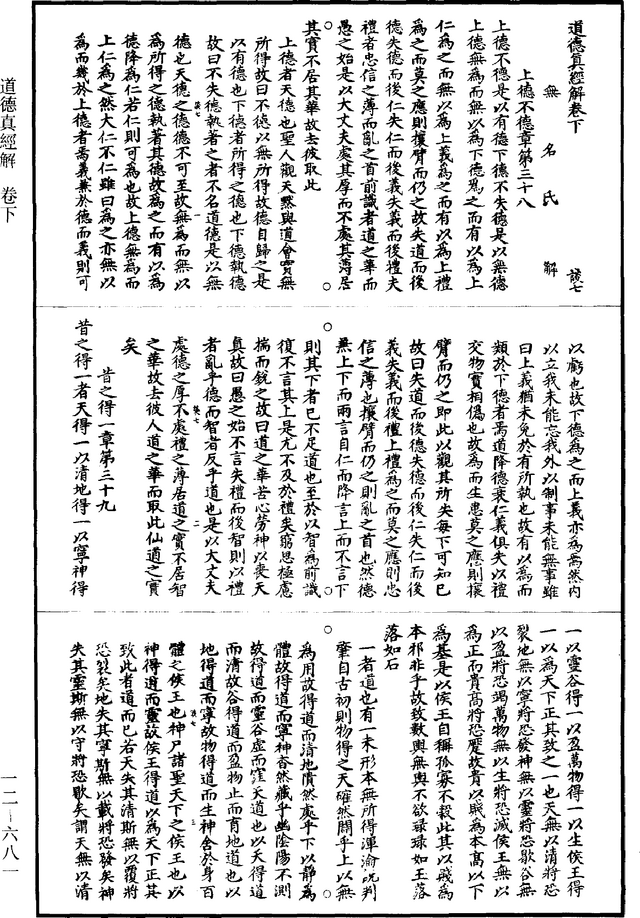 道德真經解卷下
無名氏　解　談七
上德不德章第三十八
上德不德是以有德下德不失德是以無德
上德無爲而無以爲下德爲之而有以爲上
仁爲之而無以爲上義爲之而有以爲上禮
爲之而莫之應則攘臂而仍之故失道而後
德失德而後仁失仁而後義失義而後禮夫
禮者忠信之薄而亂之首前識者道之華而
愚之始是以大丈夫處其厚而不處其薄居
其實不居其華故去彼取此
上德者天德也聖人觀天默與道會實無
所得故曰不德以無所得故德自歸之是
以有德也下德者所得之德也下德執德
故曰不失德執著之者不名道德是以無
德也天德之德德不可至故無爲而無以
爲所得之德執著其德故爲之而有以爲
德降爲仁若仁則可爲也故上德無爲而
上仁爲之然大仁不仁雖曰爲之亦無以
爲而幾於上德者焉義兼於德而義則可
以虧也故下德爲之而上義亦爲焉然内
以立我未能忘我外以制事未能無事雖
曰上義猶未免於有所執也故有以爲而
類於下德者焉道降德衰仁義俱失以禮
交物實相僞也故爲而生患莫之應則攘
臂而仍之即此以觀其所失每下可知已
故曰失道而後德失德而後仁失仁而後
義失義而後禮上禮爲之而莫之應則忠
信之薄也攘臂而仍之則亂之首也然德
無上下而兩言自仁而降言上而不言下
則其下者已不足道也至於以智爲前識
復不言其上是尤不及於禮矣窮思極慮
揣而銳之故曰道之華苦心勞神以喪天
真故曰愚之始不言失禮而後智則以禮
者亂乎德而智者反乎道也是以大丈夫
處德之厚不處禮之薄居道之實不居智
之華故去彼人道之華而取此仙道之實
矣
昔之得一章第三十九
昔之得一者天得一以清地得一以寧神得
一以靈谷得一以盈萬物得一以生侯王得
一以爲天下正其致之一也天無以清將恐
裂地無以寧將恐發神無以靈將恐歇谷無
以盈將恐竭萬物無以生將恐滅侯王無以
爲正而貴高將恐蹷故貴以賤爲本高以下
爲基是以侯王自稱孤寡不穀此其以賤爲
本邪非乎故致數輿無輿不欲琭琭如玉落
落如石
一者道也有一未形本無所得渾淪既判
肇自古初則物得之天確然關乎上以無
爲用故得道而清地隤然處乎下以靜爲
體故得道而寧神杳然藏乎幽陰陽不測
故得道而靈谷虛而窪天道也以天得道
而清故谷得道而盈物止而育地道也以
地得道而寧故物得道而生神舍於身百
體之侯王也神尸諸聖天下之侯王也以
神得道而靈故侯王得道以爲天下正其
致此者道而已若天失其清斯無以覆將
恐裂矣地失其寧斯無以載將恐發矣神
失其靈斯無以守將恐歇矣謂天無以清
道德真經解　卷下
一二—六八一